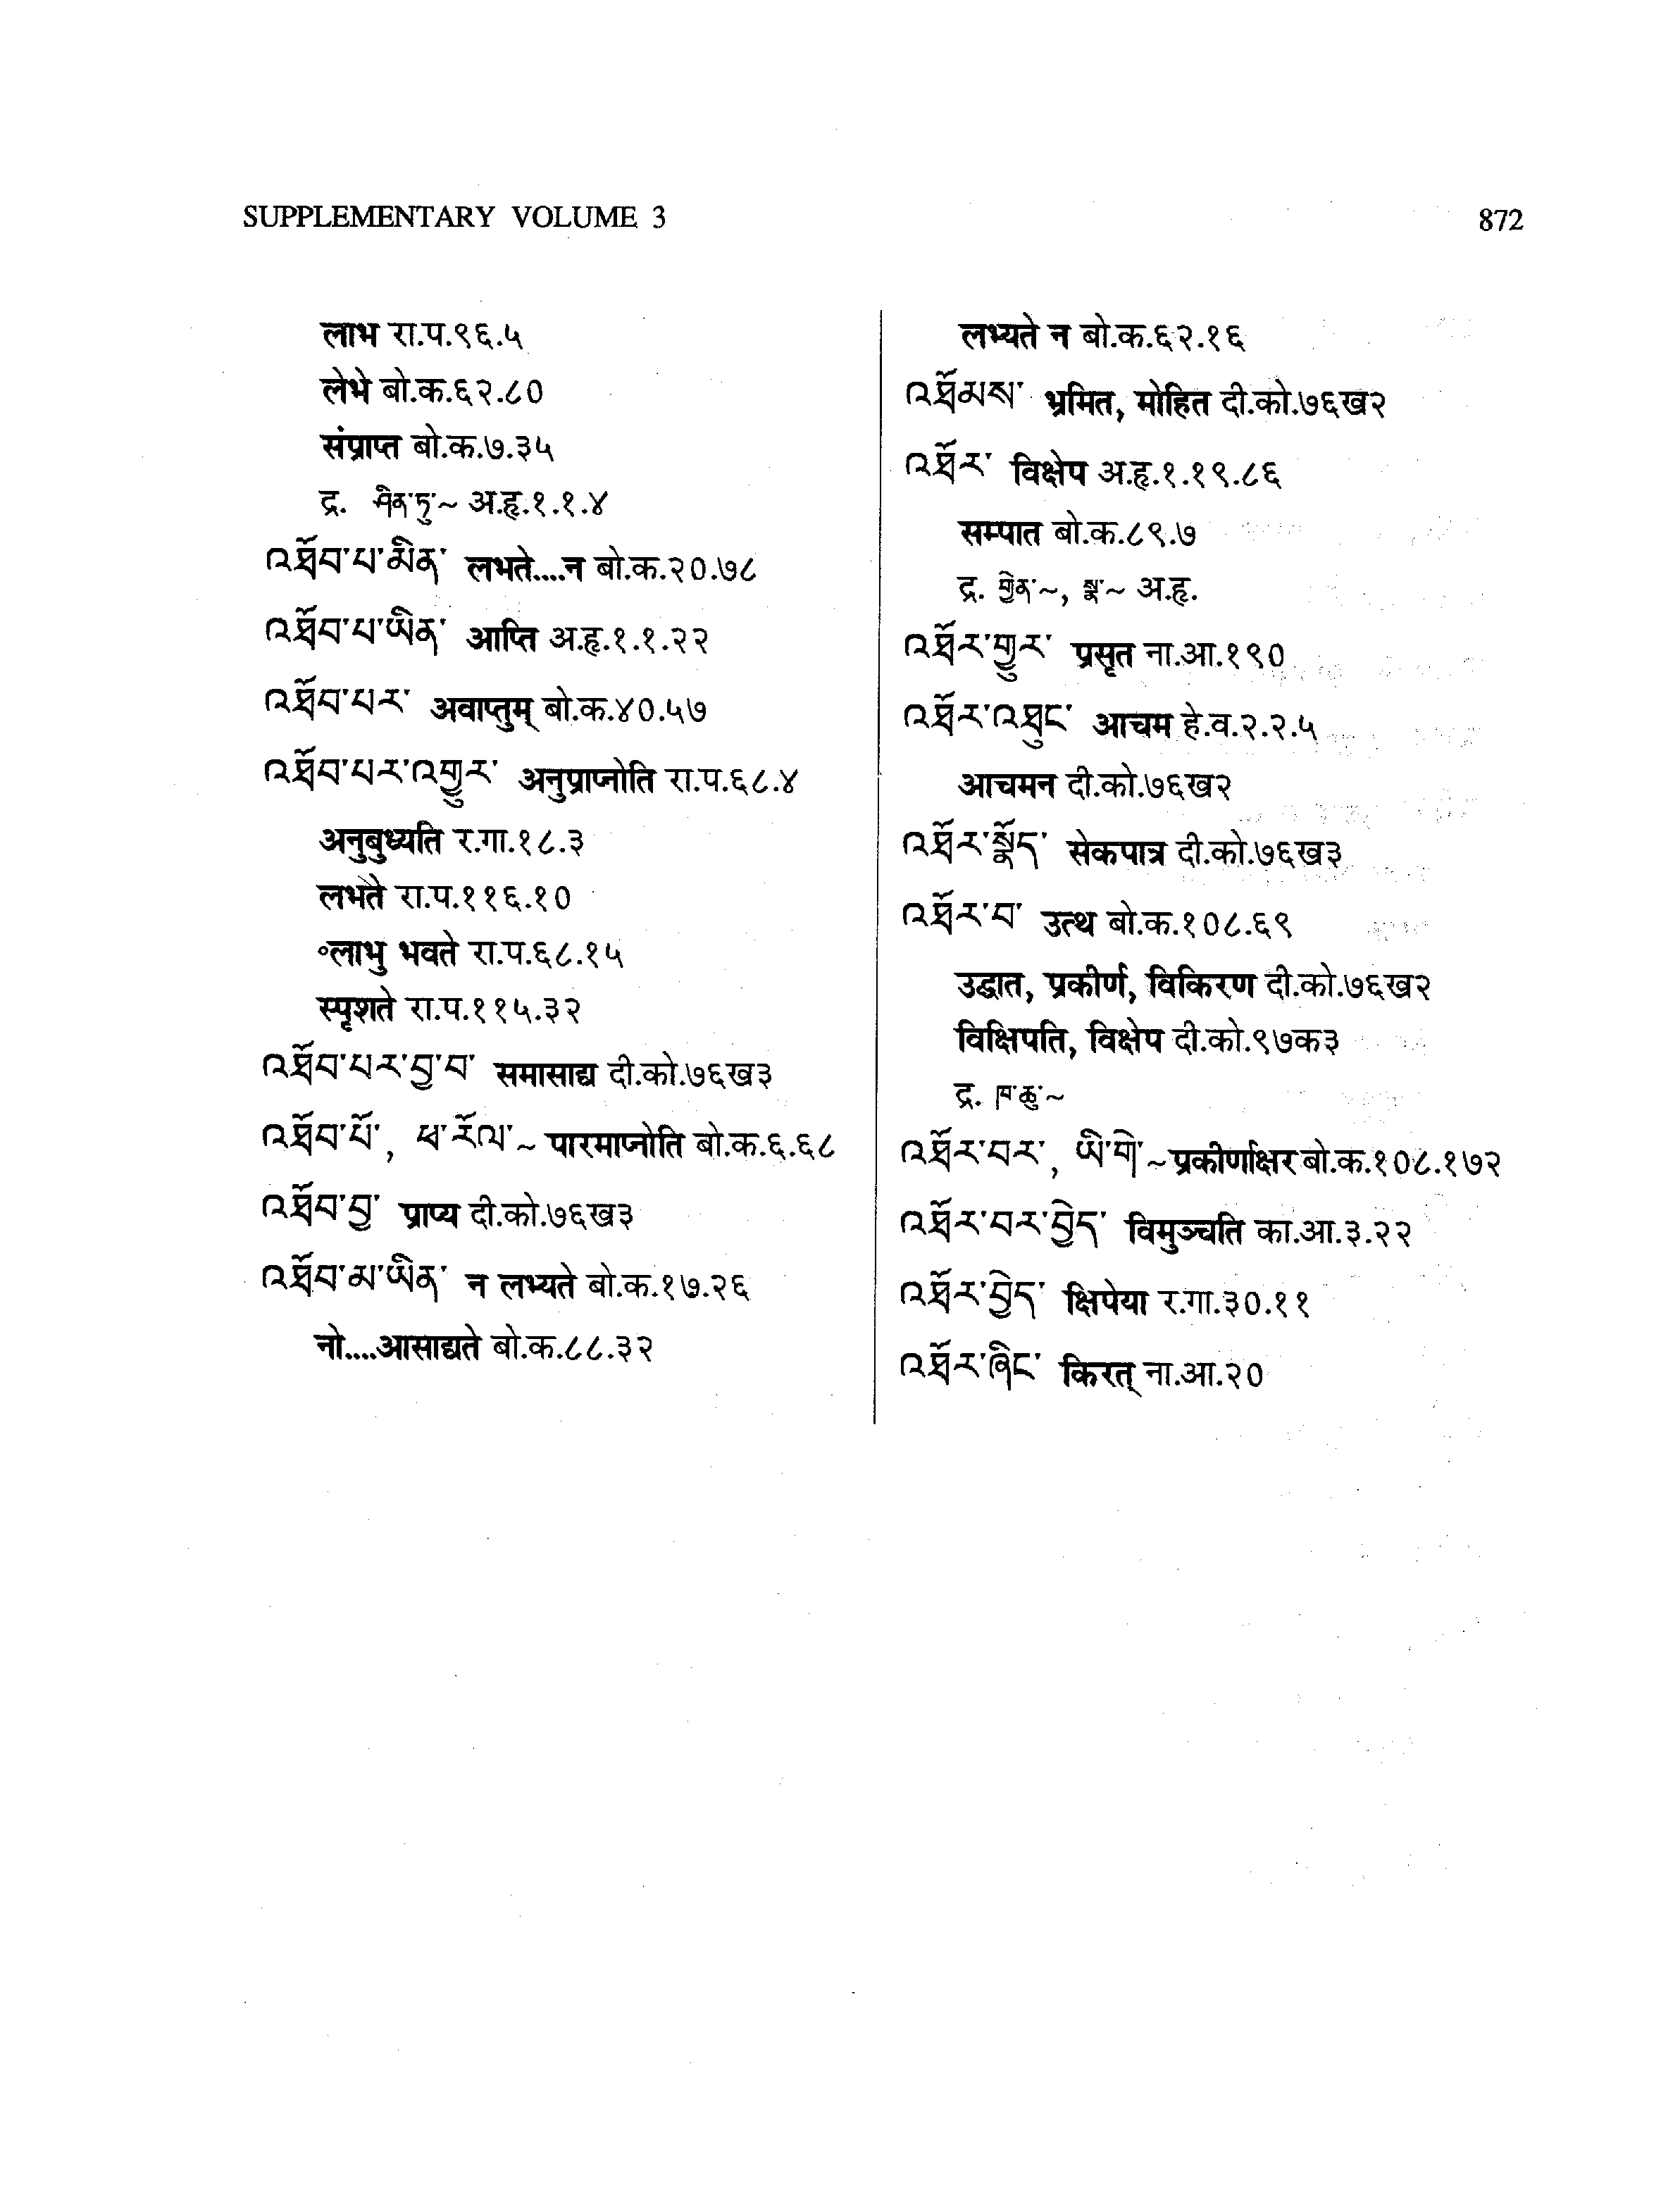 SUPPLEMENTARY VOLUME 3
872
लाभ रा.प.९६.५
लेभे बो.क.६२.८०
संप्राप्त बो.क.७.३५
द्र. ཤིན་ཏུ་~ अ.हृ.१.१.४
འཐོབ་པ་མིན་ लभते....न बो.क.२०.७८
འཐོབ་པ་ཡིན་ आप्ति अ.हृ.१.१.२२
འཐོབ་པར་ अवाप्तुम् बो.क.४०.५७
འཐོབ་པར་འགྱུར་ अनुप्राप्नोति रा.प.६८.४
अनुबुध्यति र.गा.१८.३
लभते रा.प.११६.१०
॰लाभु भवते रा.प.६८.१५
स्पृशते रा.प.११५.३२
འཐོབ་པར་བྱ་བ་ समासाद्य दी.को.७६ख३
འཐོབ་པོ་, ཕ་རོལ་~ पारमाप्नोति बो.क.६.६८
འཐོབ་བྱ་ प्राप्य दी.को.७६ख३
འཐོབ་མ་ཡིན་ न लभ्यते बो.क.१७.२६
नो....आसाद्यते बो.क.८८.३२
लभ्यते न बो.क.६२.१६
འཐོམས་ भ्रमित, मोहित दी.को.७६ख२
འཐོར་ विक्षेप अ.हृ.१.१९.८६
सम्पात बो.क.८९.७
द्र. གྱེན་~, སྣ་~ अ.हृ.
འཐོར་གྱུར་ प्रसृत ना.आ.१९०
འཐོར་འཐུང་ आचम हे.व.२.२.५
आचमन दी.को.७६ख२
འཐོར་སྣོད་ सेकपात्र दी.को.७६ख३
འཐོར་བ་ उत्थ बो.क.१०८.६९
उद्धात, प्रकीर्ण, विकिरण दी.को.७६ख२
विक्षिपति, विक्षेप दी.को.९७क३
द्र. ཁ་ཆུ་~
འཐོར་བར་, ཡི་གེ་~प्रकीर्णाक्षर बो.क.१०८.१७२
འཐོར་བར་བྱེད་ विमुञ्चति का.आ.३.२२
འཐོར་བྱེད་ क्षिपेया र.गा.३०.११
འཐོར་ཞིང་ किरत् ना.आ.२०